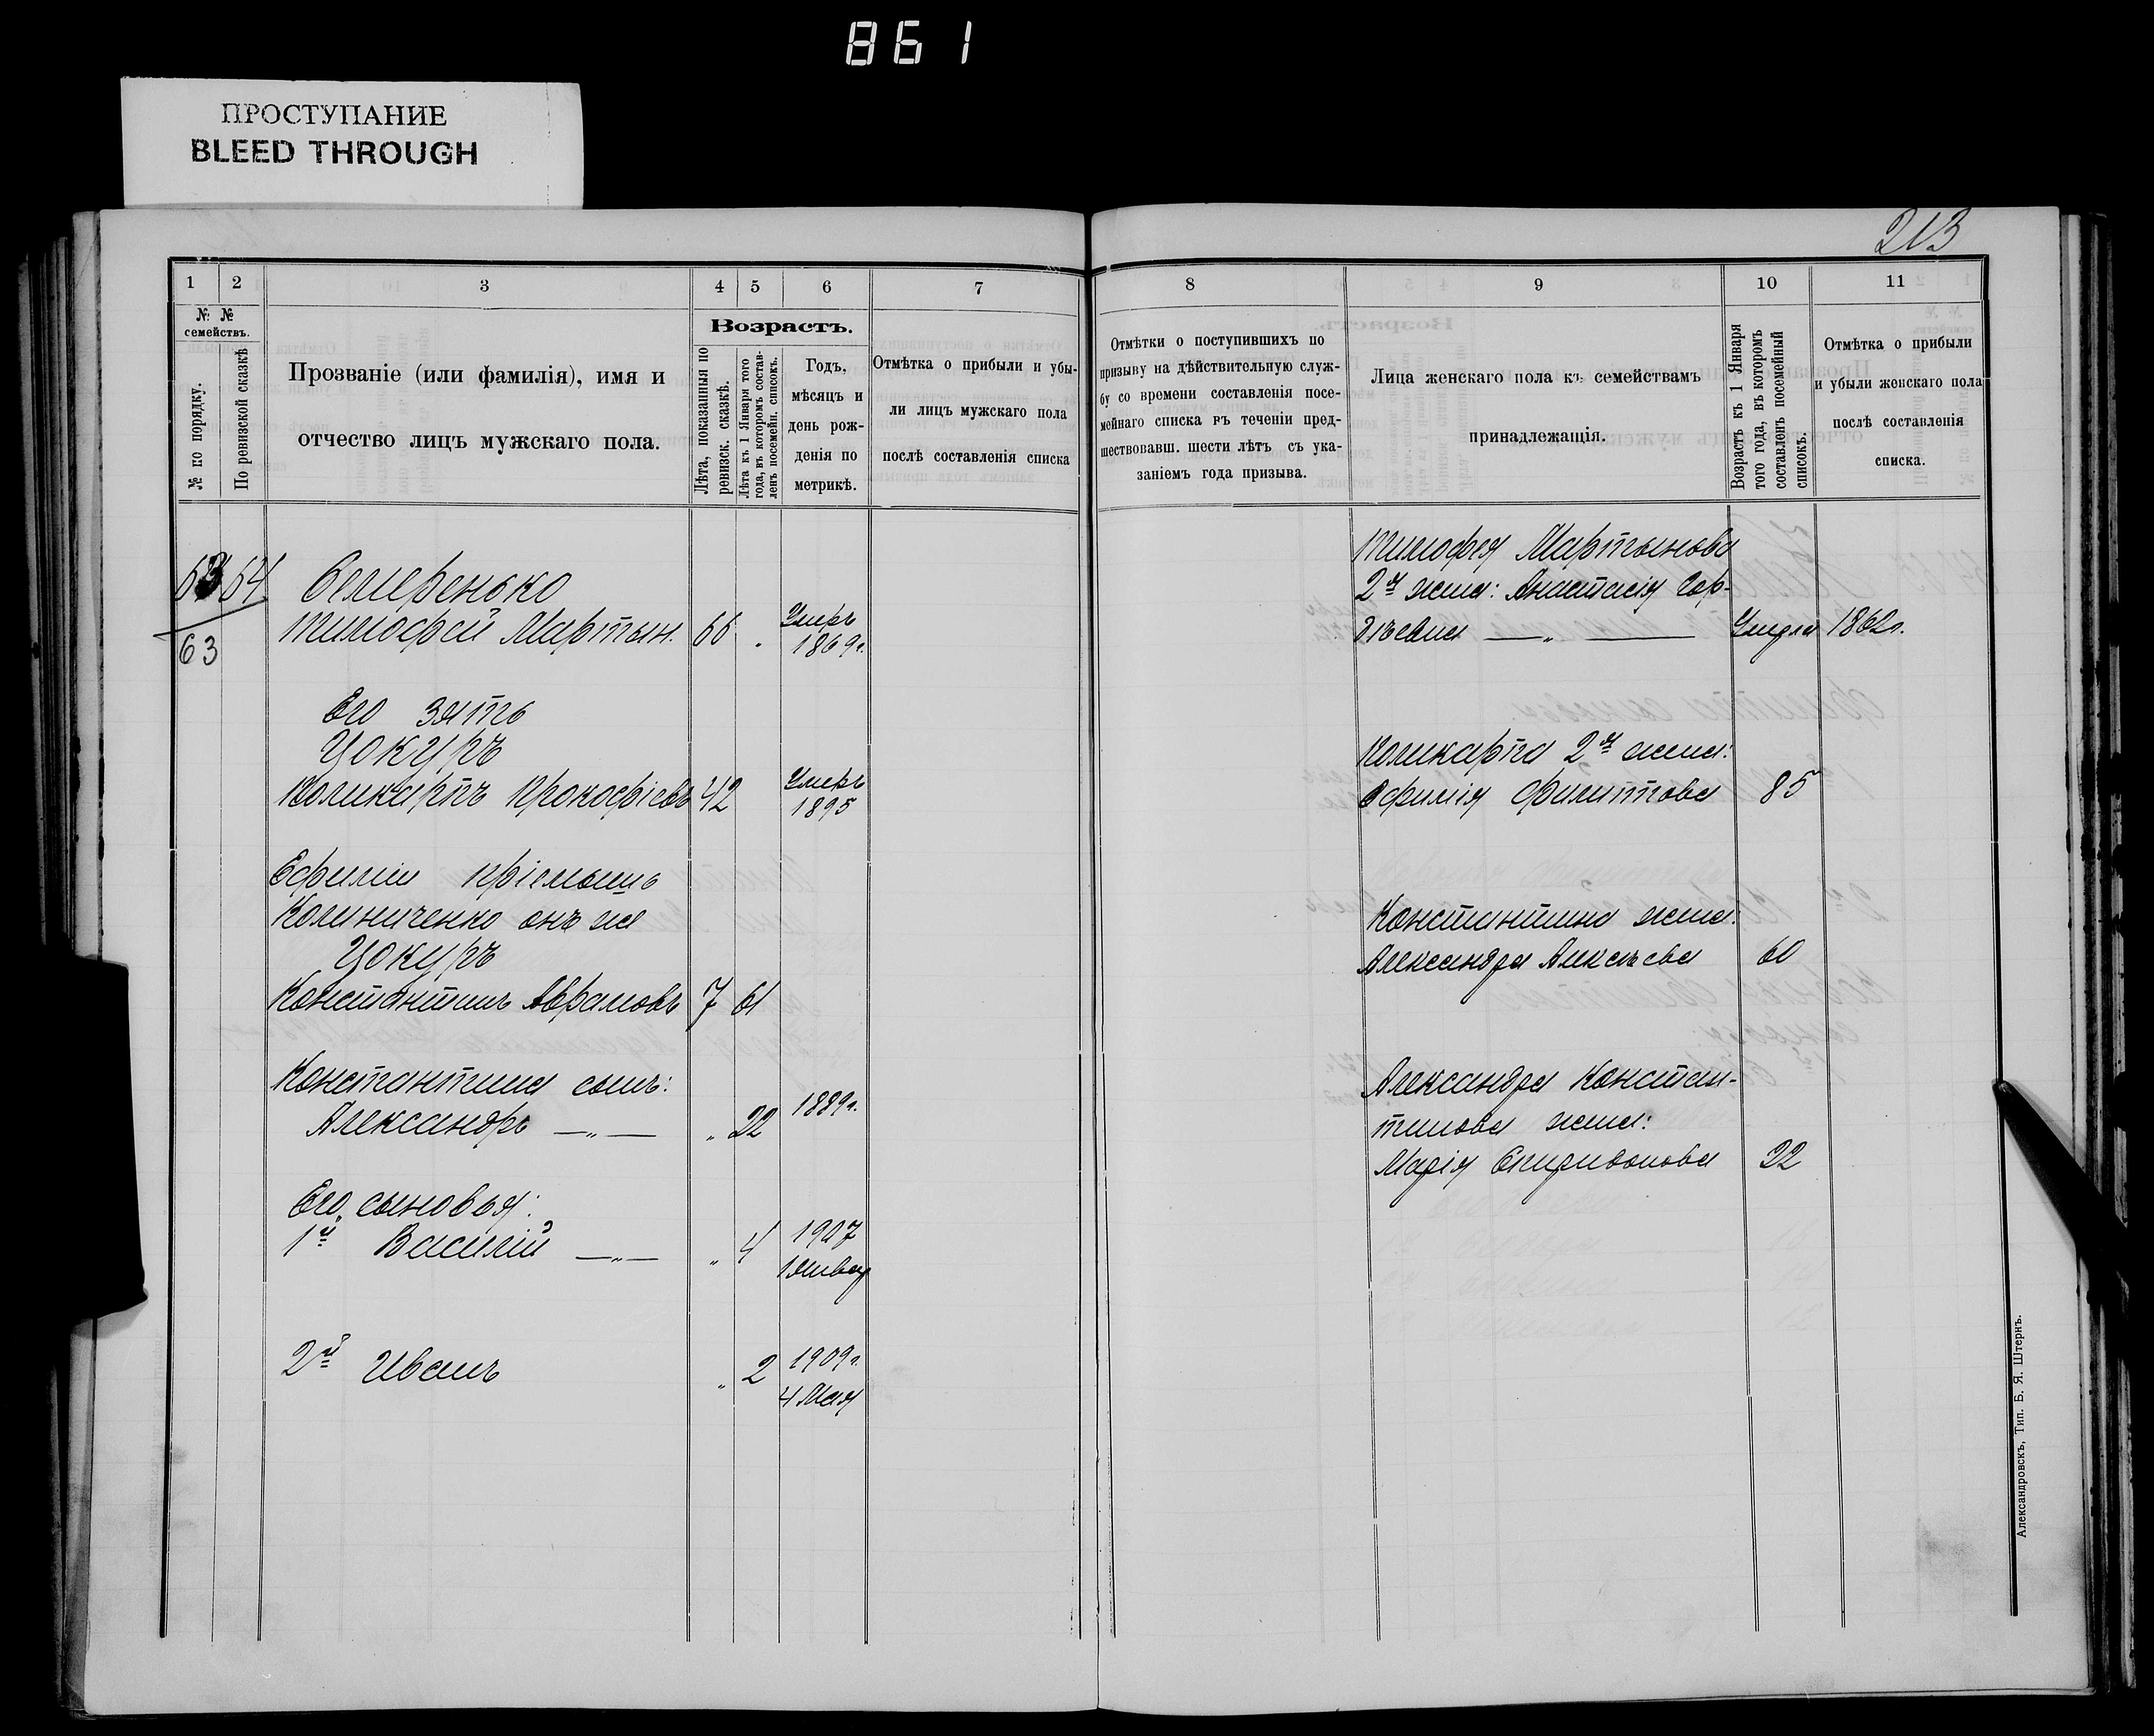 861
ПРОСТУПАНИЕ
BLEED THROUGH
213
1 2 3 4 5 6 7
№ № семействъ.
№ по порядку.
По ревизской сказкѣ
Прозваніе (или фамилія), имя и
отчество лицъ мужскаго пола.
Возрастъ.
Лѣта, показанныя по
ревизск. сказкѣ.
Лѣта къ 1 Января того
года, въ которомъ состав-
ленъ посемейн. списокъ.
Годъ,
мѣсяцъ и
день рож-
денія по
метрикѣ.
Отмѣтка о прибыли и убы-
ли лицъ мужскаго пола
послѣ составленія списка
63 64 Семеренько
Тимофей Мартын. 66 Умеръ
63 1869г.
Его зять
Цокуръ
Поликарпъ Прокофіевъ 42 Умеръ
1895
Ефиміи пріемышъ
Колиниченко онъ же
Цокуръ
Константинъ Аврамовъ 7 61
Константина сынъ:
Александръ —„— „ 22 1889г.
Его сыновья:
1й Василій —„— „ 4 1907
1 Январ
2й Иванъ „ 2 1909г.
4 Мая
8 9 10 11
Отмѣтки о поступившихъ по
призыву на дѣйствительную служ-
бу со времени составленія посе-
мейнаго списка въ теченіи пред-
шествовавш. шести лѣтъ съ ука-
заніемъ года призыва.
Лица женскаго пола къ семействамъ
принадлежащія.
Возрастъ къ 1 Января
того года, въ которомъ
составленъ посемейный
списокъ.
Отмѣтка о прибыли
и убыли женскаго пола
послѣ составленія
списка.
Тимофея Мартынова
2я жена: Анастасія Гор-
дѣева —„— Умерла 1862г.
Поликарпа 2я жена:
Ефимія Филиппова 85
Константина жена:
Александра Алексѣева 60
Александра Констан-
тинова жена:
Марія Спиридонова 22
Александровскъ, Тип. Б. Я. Штернъ.